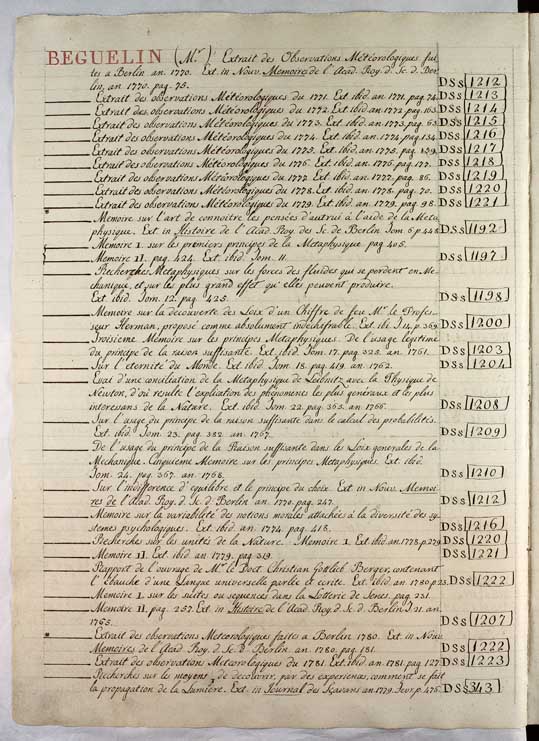 BEGUELIN (Mr.) Extrait des Observations Météorologiques fai-
tes a Berlin an. 1770. Ext. in Nouv. Memoires de l'Acad. Roy. d. Sc. d. Ber-
lin, an. 1770. pag. 75. DSs 1212
Extrait des observations Météorologiques du 1771. Ext. ibid an. 1771. pag. 74. DSs 1213
Extrait des observations Météorologiques du 1772. Ext. ibid an. 1772. pag. 163 DSs 1214
Extrait des observations Météorologiques du 1773. Ext. ibid an. 1773. pag. 63 DSs 1215
Extrait des observations Météorologiques du 1774. Ext. ibid an. 1774. pag. 134 DSs 1216
Extrait des observations Météorologiques du 1775. Ext. ibid an. 1775. pag. 139 DSs 1217
Extrait des observations Météorologiques du 1776. Ext. ibid an. 1776. pag. 177. DSs 1218
Extrait des observations Météorologiques du 1777. Ext. ibid an. 1777. pag. 86. DSs 1219
Extrait des observations Météorologiques du 1778. Ext. ibid an. 1778. pag. 70. DSs 1220
Extrait des observations Météorologiques du 1779. Ext. ibid an. 1779. pag. 98. DSs 1221
Memoire sur l'art de connoitre les pensées d'autrui à l'aide de la Meta-
physique. Ext in Histoire de l'Acad. Roy. des Sc. de Berlin Tom. 6 p. 448 DSs 1192
Memoire I. sur les premiers principes de la Metaphysique pag 405.
Memoire II. pag. 424. Ext. ibid. Tom. 11. DSs 1197
Recherches Metaphysiques sur les forces des fluides qui se perdent en Me-
chanique, et sur les plus grand effet qu'elles peuvent produire.
Ext ibid. Tom. 12. pag. 425. DSs 1198
Memoire sur la découverte des Loix d'un Chiffre de feu Mr. le Profes-
seur Herman, proposé comme absolument indechifrable. Ext. ibi. T. 14. p. 369 DSs 1200
Troisieme Memoire sur les principes Metaphysiques. De l'usage legitime
du principe de la raison suffisante. Ext. ibid Tom. 17. pag. 325. an. 1761. DSs 1203
Sur l'eternité du Monde. Ext. ibid Tom. 18. pag. 419. an. 1762. DSs 1204
Essai d'une conciliation de la Metaphysique de Leibnitz avec la Physique de
Newton, d'où resulte l'explication des phénomenes les plus generaux et les plus
interessans de la Nature. Ext. ibid. Tom. 22. pag. 365. an. 1766. DSs 1208
Sur l'usage du principe de la raison suffisante dans le calcul des probabilités.
Ext. ibid. Tom. 23. pag. 382. an. 1767. DSs 1209
De l'usage du principe de la Raison suffisante dans les Loix generales de la
Mechanique. Cinquieme Memoire sur les principes Metaphysiques. Ext. ibid.
Tom. 24. pag. 367. an. 1768. DSs 1210
Sur l'indifference d'equilibre et le principe du choix. Ext in Nouv. Memoi-
res de l'Acad. Roy. d. Sc. d. Berlin an. 1770. pag. 247. DSs 1212
Memoire sur la variabilité des notions morales attachées à la diversité des sy-
stemes psychologiques. Ext. ibid an. 1774. pag. 418. DSs 1216
Recherches sur les unités de la Nature. Memoire I. Ext ibid. an. 1778. p. 279 DSs 1220
Memoire II. Ext ibid an 1779. pag 319. DSs 1221
Rapport de l'ouvrage de Mr. le Doct. Christian Gotlieb Berger, contenant
l'ébauche d'une Langue universelle parlée et écrite. Ext. ibid an. 1780. p. 23. DSs 1222
Memoire I. sur les suites ou sequences dans la Lotterie de Genes. pag. 231.
Memoire II. pag. 257. Ext. in Histoire de l'Acad. Roy. d. Sc. d. Berlin T. 21. an.
1765. DSs 1207
Extrait des observations Météorologiques faites a Berlin 1780. Ext in Nouv.
Memoires de l'Acad. Roy. d. Sc. d. Berlin. an. 1780. pag. 181. DSs 1222
Extrait des observations Météorologiques du 1781. Ext. ibid an. 1781. pag. 127 DSs 1223
Recherches sur les moyens, de decouvrir, par des experiences, comment se fait
la propagation de la Lumière. Ext. in Journal des Sçavans an. 1779. Fevr. p. 475. DSs 343